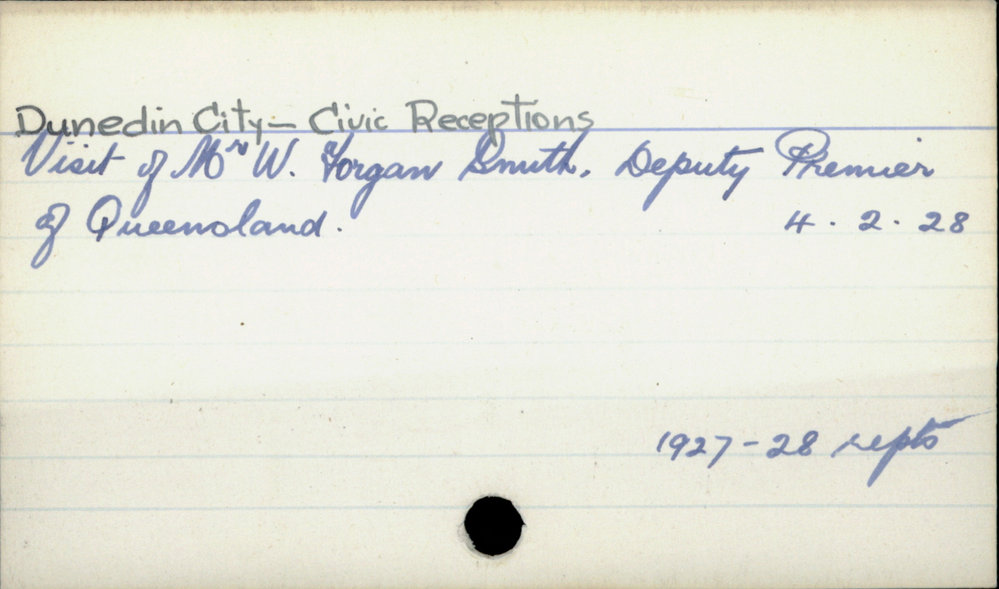 Dunedin City – Civic Receptions
Visit of Mr W. Forgan Smith, Deputy Premier
of Queensland. 4 . 2 . 28
1927-28 repts